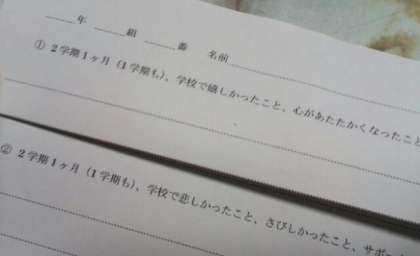 年 組 番 名前
① 2学期1ヶ月（1学期も）、学校で嬉しかったこと、心があたたかくなったこと
② 2学期1ヶ月（1学期も）、学校で悲しかったこと、さびしかったこと、サポー